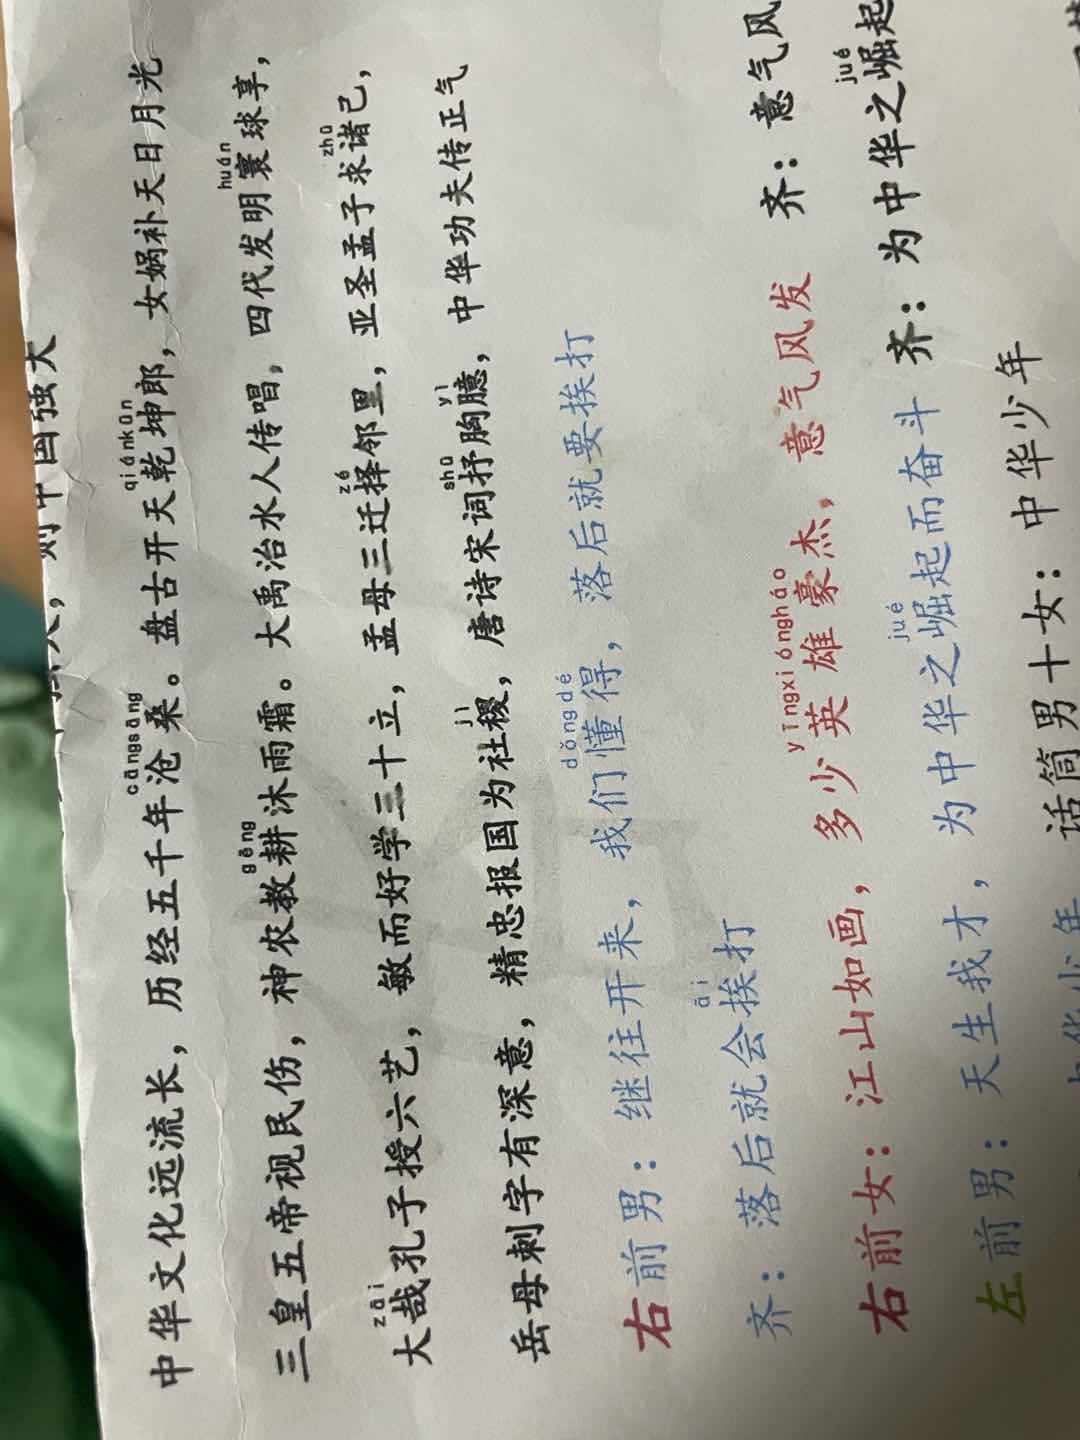 则中国强大
cāngsāng qiánkūn
中华文化远流长，历经五千年沧桑。盘古开天乾坤郎，女娲补天日月光
gēng huán
三皇五帝视民伤，神农教耕沐雨霜。大禹治水人传唱，四代发明寰球享，
zāi zé zhū
大哉孔子授六艺，敏而好学三十立，孟母三迁择邻里，亚圣孟子求诸己，
jì shū yì
岳母刺字有深意，精忠报国为社稷，唐诗宋词抒胸臆，中华功夫传正气
dǒngdé
右前男：继往开来，我们懂得，落后就要挨打
āi
齐：落后就会挨打
yīngxiónghǎo
右前女：江山如画，多少英雄豪杰，意气风发 齐：意气风
jué jué
左前男：天生我才，为中华之崛起而奋斗 齐：为中华之崛起
中华少年 话筒男十女：中华少年